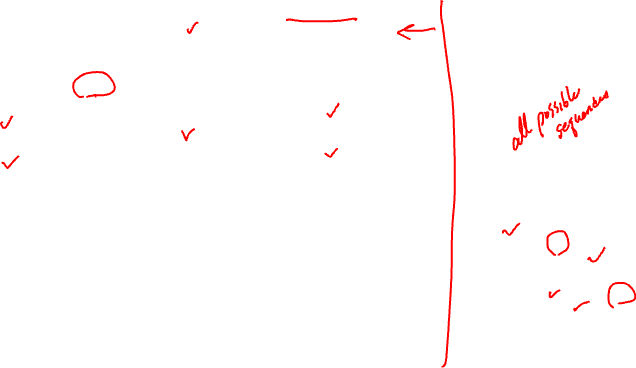 all possible
sequences